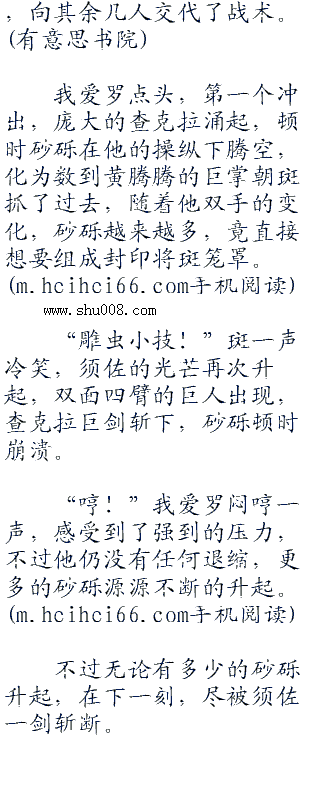 ，向其余几人交代了战术。
(有意思书院)
我爱罗点头，第一个冲
出，庞大的查克拉涌起，顿
时砂砾在他的操纵下腾空，
化为数到黄腾腾的巨掌朝斑
抓了过去，随着他双手的变
化，砂砾越来越多，竟直接
想要组成封印将斑笼罩。
(m.hcihci66.com手机阅读)
www.shu008.com
“雕虫小技！”斑一声
冷笑，须佐的光芒再次升
起，双面四臂的巨人出现，
查克拉巨剑斩下，砂砾顿时
崩溃。
“哼！”我爱罗闷哼一
声，感受到了强到的压力，
不过他仍没有任何退缩，更
多的砂砾源源不断的升起。
(m.hcihci66.com手机阅读)
不过无论有多少的砂砾
升起，在下一刻，尽被须佐
一剑斩断。